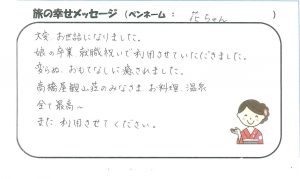 旅の幸せメッセージ (ペンネーム： 花ちゃん )
大変 お世話になりました。
娘の卒業 就職祝いで利用させていただきました。
変らぬ おもてなしに癒されました。
高橋屋観山荘のみなさま お料理 温泉
全て最高〜
また 利用させてください。